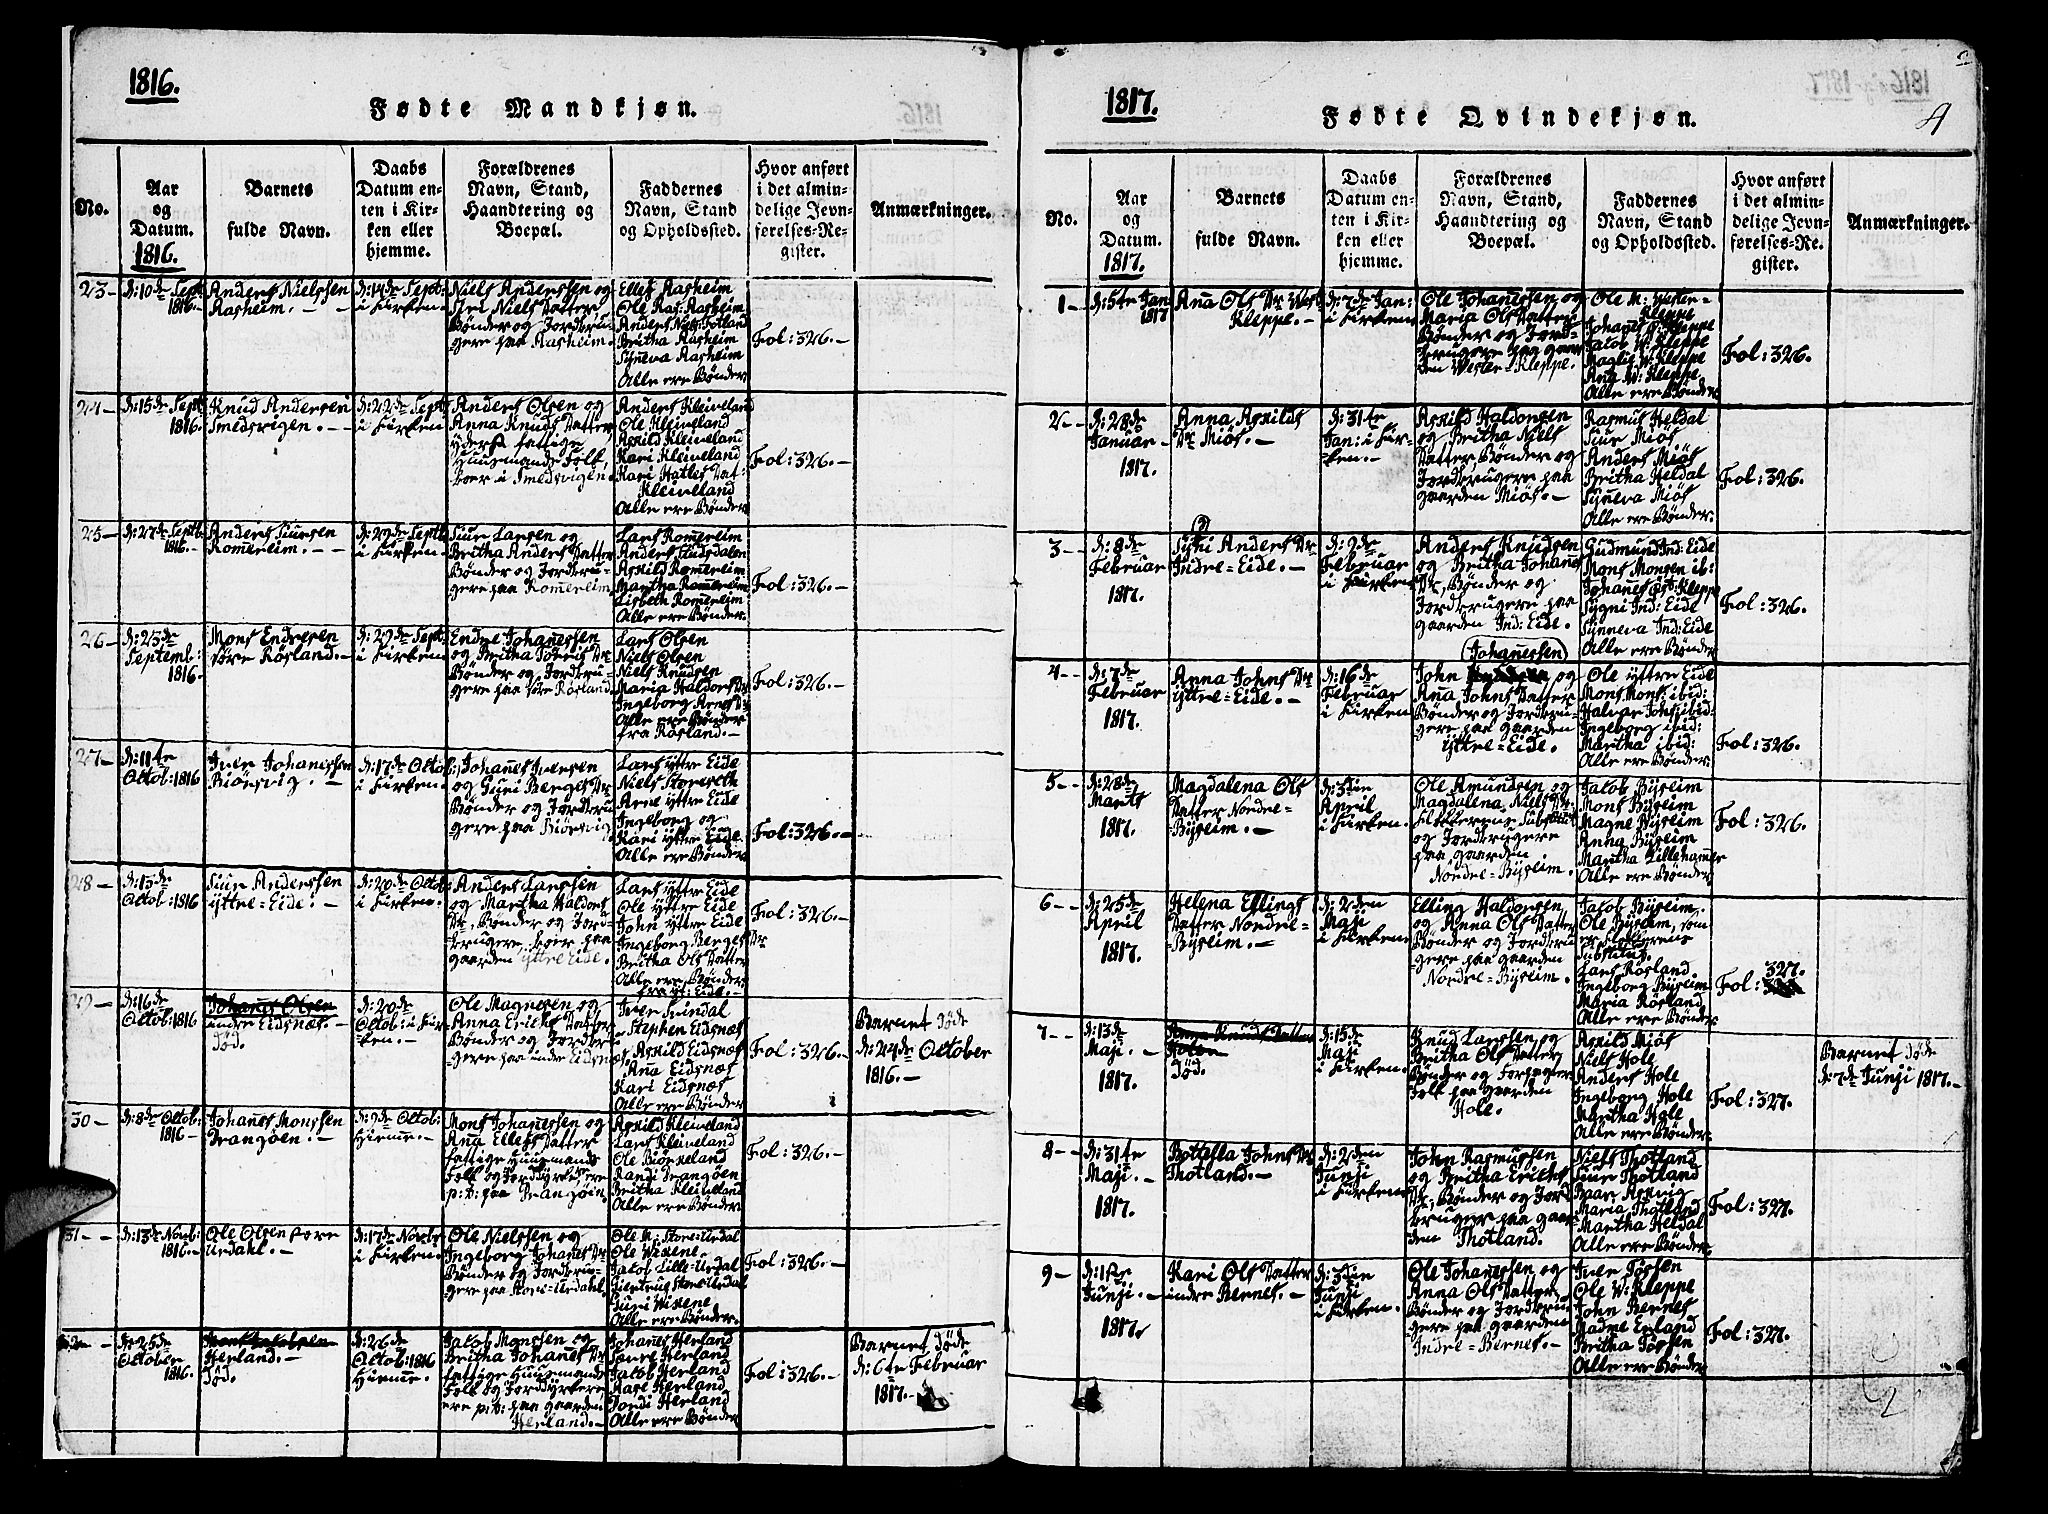 1816.
Fødte Mandkjøn.
No.
Aar
og
Datum.
1816.
Barnets
fulde Navn.
Daabs
Datum en-
ten i Kir-
ken eller
hjemme.
Forældrenes
Navn, Stand,
Haandtering og
Boepæl.
Faddernes
Navn, Stand
og Opholdssted.
Hvor anført
i det almin-
delige Jevn-
førelses-Re-
gister.
Anmærkninger.
23-
d: 10de Sept
1816.-
Anders Nielssen
Aasheim. - -
d: 14de Sept:
i Kirken.
Niels Anderssen og
Niels Datter
Bønder og Jordbru-
gere paa Aasheim.
Ellef Aasheim
Ole Ras: Aasheim
Anders Niels: Totland
Britha Aasheim
Synneva Aasheim
Alle ere Bønder
Fol: 326.-
24-
d: 15de Sept
1816.
Knud Andersen
Smedsvigen. - -
d: 22de Sept
i Kirken
Anders Olsen og
Anna Knuds Datter,
yderst fattige
Huusmands Folk,
boer i Smedsvigen.
Anders Kleiveland
Ole Kleiveland
Askild Kleiveland
Kari Kleiveland
Kari Hatles Dat-
Kleiveland
Alle ere Bønder
Fol: 326.-
25-
d: 27de Septb.
1816.-
Anders Siursen
Romereim. - -
d: 29de Sept
i Kirken.
Siur Larsen og
Britha Anders Datter
Bønder og Jordbru-
gere paa Romereim.
Lars Romereim
Anders Studsdalen
Askild Romereim
Martha Romereim
Lisbeth Romereim
Alle ere Bønder.
Fol: 326.-
26-
d: 23de
Septemb:
1816.
Mons Endresen
søre Røsland.-
d: 29de Sept:
i Kirken.-
Endre Johanessen
og Britha Dr
Bønder og Jordbru-
gere paa søre Røsland
Lars Olsen
Niels Olsen
Niels Knudsen
Maria Haldors Dr
Ingeborg Arnes Dr
Alle ere Bønder
fra Røsland.-
Fol: 326.-
27-
d: 11te
Octob: 1816
Iver Johanessen
Biørsvig. -
d: 17de Octob:
i Kirken.-
Johanes Iversen
og Guri Berges Dr
Bønder og Jordbru-
gere paa Biørsvig.
Lars yttre Eide
Niels
Arne yttre Eide
Ingeborg og
Kari yttre Eide
Alle ere Bønder
Fol: 326.-
28-
d: 13de
Octob: 1816
Siur Anderssen
yttre=Eide. -
d: 20de Octob:
i Kirken.-
Anders Larssen
og Martha Haldors
Dr, Bønder og Jord-
brugere, boer paa
gaarden yttre Eide.
Lars yttre Eide
Ole yttre Eide
John yttre Eide
Ingeborg Berges Dr
Britha Ols Datter
Alle ere Bønder
fra yt: Eide.-
Fol: 326.-
29-
d: 16de
Octob: 1816
Johanes Olsen
indre Eidsnæs.-
Død.
d: 20de
Octob: i Kir-
ken.-
Ole Magnesen og
Anna Erichs Datter
Bønder og Jordbru-
gere paa indre Eidsnæs
Iver
Stephen Eidsnæs
Askild Eidsnæs
Ana Eidsnæs
Kari Eidsnæs
Alle ere Bønder
Fol: 326.-
Barnet Døde
d: 24de October
1816.-
30-
d: 8de Octob:
1816-
Johanes Monssen
Drangøen.-
d: 9de Octob:
Hieme.-
Mons Johanessen og
Ana Ellefs Datter
fattige Huusmands
Folk og Jorddyrkere, ere
p: t: paa Drangøin.
Askild Kleiveland
Lars Kleiveland
Ole Biørneland
Randi Drangøen
Britha Kleiveland
Alle ere Bønder
Fol: 326.-
31--
d: 13de Novb:
1816.-
Ole Olsen store
Urdahl.-
d: 17de Novbr
i Kirken.-
Ole Nielssen og
Ingeborg Johanes Dr
Bønder og Jordbru-
gere paa Store-Urdahl.
Ole M: Store-Urdal
Ole Wixene
Jacob Lille-Urdal
Giertrug Store-Urdal
Guri Wixene
Alle ere Bønder.
Fol: 326.-
32-
d: 25de
October
1816.
Mons Jakobsen
Herland.-
Død.
d: 26de
Octob: 1816
Hieme.
Jakob Monssen og
Britha Johanes Dr
fattige Huusmands
Folk og Jorddyrkere
ere p: t: paa gaarden
Herland.-
Johanes Herland
Herland
Jakob Herland
Kari Herland
Herland
Alle ere Bønder
Fol: 326.-
Barnet Døde
d: 6te Februar
1817.-
1817.
Fødte Qvindekjøn.
4
No.
Aar
og
Datum.
1817.
Barnets
fulde Navn.
Daabs
Datum en-
ten i Kir-
ken eller
hjemme.
Forældrenes
Navn, Stand,
Haandtering og
Boepæl.
Faddernes
Navn, Stand
og Opholdssted.
Hvor anført
i det almin-
delige Jevn-
førelses-Re-
gister.
Anmærkninger.
1--
d: 5te Jan
1817
Ana Ols Dr West
Kleppe.-
d: 7de Jan:
i Kirken.
Ole Johanessen og
Maria Ols Datter
Bønder og Jord-
brugere paa gaar
den Wester=Kleppe.
Ole M: Wester-
Kleppe
Johanes W: Kleppe
Jakob W: Kleppe
Magli W: Kleppe
W: Kleppe
Alle ere Bønder
Fol: 326.
2--
d: 28de
Januar -
1817.
Anna Askilds
Dr Miøs.-
d: 31te
Jan: i Kir-
ken.-
Askild Haldorsen
og Britha Niels
Datter, Bønder og
Jordbrugere paa
gaarden Miøs.-
Rasmus Heldal
Siur Miøs
Anders Miøs
Britha Heldal
Synneva Miøs
Alle ere Bønder.
Fol: 326.
3--
d: 8de
Februar
1817.
Sygni Anders Dr
Indre=Eide.-
d: 9de
Februar
i Kirken
Anders Knudsen
og Britha Johanes
Dr, Bønder og
Jordbrugere paa
gaarden Ind: Eide.
Gudmund Ind: Eide
Mons Monsen ib:
Johanes Øst: Kleppe
Sygni Ind: Eide
Synneva Ind: Eide
Alle ere Bønder
Fol: 326.
4--
d: 7de
Februar
1817.
Anna Johns Dr
yttre=Eide.-
d: 16de
Februar
i Kirken
Johanessen
John og
Ana Johns Datter
Bønder og Jordbru-
gere paa gaarden
yttre=Eide.
Ole yttre Eide
Mons Mons: ibid:
Halvar Johs: ibid:
Ingeborg ibid:
Martha ibid:
Alle ere Bønder
Fol: 326.
5--
d: 28de
Marts
1817.
Magdalena Ols
Datter Nordre-
Byseim.-
d: 3die
April
i Kirken.
Ole Amundsen og
Magdalena Niels Dr
Klokkerens Substitut
og Jordbrugere
paa gaarden
Nordre=Byseim.
Jakob Byseim
Mons Byseim
Magne Byseim
Anna Byseim
Martha Lillehamer
Alle ere Bønder
Fol: 326.
6--
d: 25de
April
1817.
Helena Ellings
Datter Nordre-
Byseim.-
d: 2den
Maji
i Kirken
Elling Haldorsen
og Anna Ols Datter
Bønder og Jordbru
gere paa gaarden
Nordre=Byseim.
Jakob Byseim
Ole Byseim, som
er Klokkerens
Substitut.
Lars Røsland
Ingeborg Byseim
Maria Røsland
Alle ere Bønder
327.
Fol:
7--
d: 13de
Maji.-
1817.
Knuds Datter
Holen
Død.
d: 15de
Maji
i Kirken.
Knud Larssen og
Britha Ols Datter
Bønder og
Folk paa gaarden
Hole.
Askild Miøs
Niels Hole
Anders Hole
Ingeborg Hole
Martha Hole
Alle ere Bønder
Fol: 327.
Barnet Døde
d: 7de Junji 1817.-
8--
d: 31te
Maji.-
1817.
Bottella Johns Dr
Thotland.-
d: 2den
Junji
i Kirken
John Rasmussen
og Britha Erichs
Dr, Bønder og Jord
bruger paa gaar-
den Thotland.
Niels Thotland
Siur Thotland
Baar Askvig
Maria Thotland og
Martha Heldal
Alle ere Bønder
Fol: 327.
9-
d: 1ste
Junji.-
1817.
Kari Ols Datter
indre Bernes.-
d: 3die
Junji
i Kirken.
Ole Johanessen og
Anna Ols Datter
Bønder og Jordbru
gere paa gaarden
Indre=Bernes.-
Iver Tøssen
Ole W: Kleppe
John Bernes
Madme Erland
Britha Tøssen
Alle ere Bønder
Fol: 327.